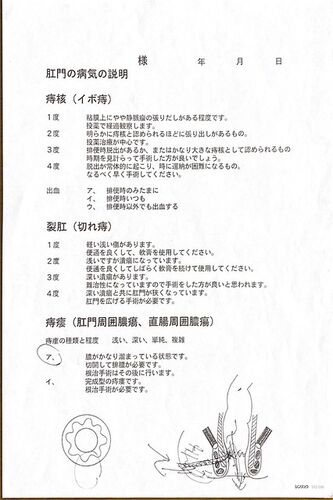 様　　　　年　　月　　日
肛門の病気の説明
痔核（イボ痔）
1度　粘膜上にやや静脈瘤の張りだしがある程度です。
投薬で経過観察します。
2度　明らかに痔核と認められるほどに張り出しがあるもの。
投薬治療が中心です。
3度　排便時脱出があるか、またはかなり大きな痔核として認められるもの
時期を見計らって手術した方が良いでしょう。
4度　脱出が常体的に起こり、時に還納が困難になるもの。
なるべく早く手術してください。
出血　ア、　排便時のみたまに
イ、　排便時いつも
ウ、　排便時以外でも出血する
裂肛（切れ痔）
1度　軽い浅い傷があります。
便通を良くして、軟膏を使用してください。
2度　浅いですが潰瘍になっています。
便通を良くしてしばらく軟膏を続けて使用してください。
3度　深い潰瘍があります。
難治性になっていますので手術をした方が良いと思われます。
4度　深い潰瘍と共に肛門が狭くなっています。
肛門を広げる手術が必要です。
痔瘻（肛門周囲膿瘍、直腸周囲膿瘍）
痔瘻の種類と程度　浅い、深い、単純、複雑
ア、　膿がかなり溜まっている状態です。
切開して排膿が必要です。
根治手術はその後に行います。
イ、　完成型の痔瘻です。
根治手術が必要です。